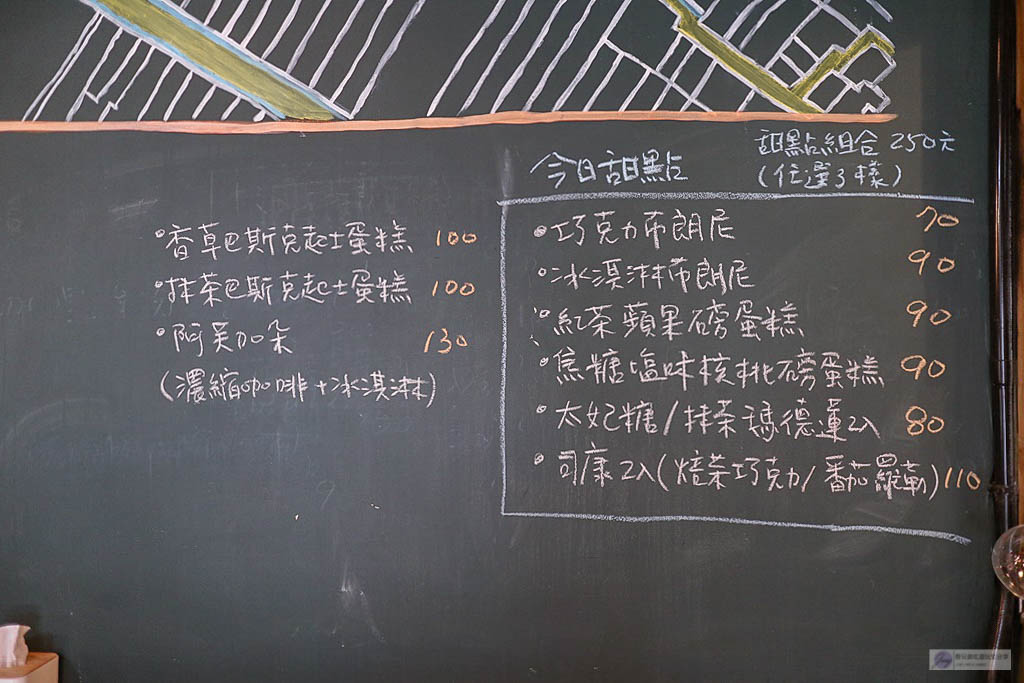 香草巴斯克起士蛋糕 100
抹茶巴斯克起士蛋糕 100
阿芙加朵 130
(濃縮咖啡+冰淇淋)
今日甜點
甜點組合 250元
(任選3樣)
巧克力布朗尼 70
冰淇淋布朗尼 90
紅茶蘋果磅蛋糕 90
焦糖塩味核桃磅蛋糕 90
太妃糖/抹茶瑪德蓮2入 80
司康2入(焙茶巧克力/番茄羅勒) 110